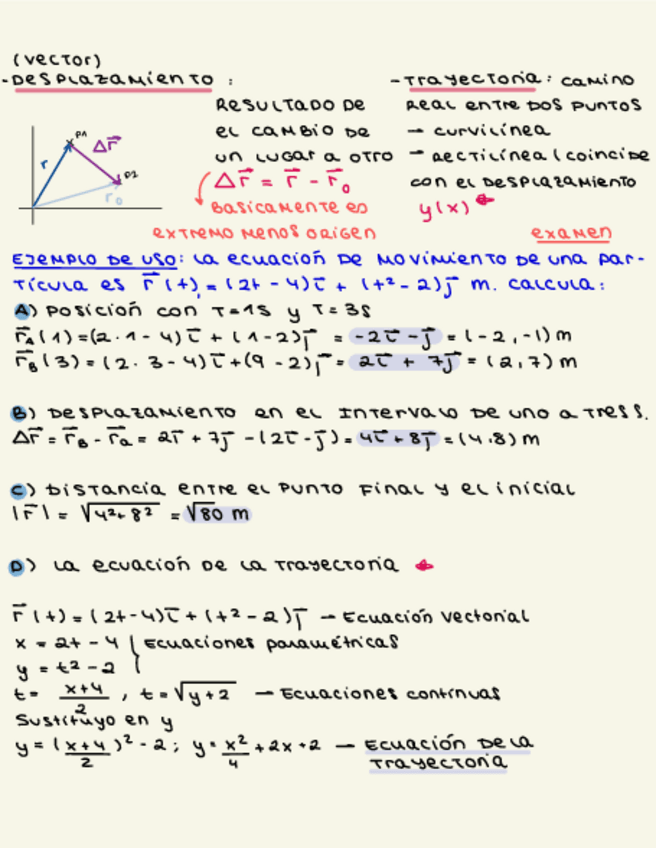 (vector)
-Desplazamiento :
Resultado de
el cambio de
un lugar a otro
Δr⃗ = r⃗ - r⃗₀
Basicamente es
extremo menos origen
-Trayectoria: camino
real entre dos puntos
- curvilínea
- rectilínea (coincide
con el desplazamiento
y(x)
examen
P1
Δr⃗
r
P2
r₀
Ejemplo de uso: La ecuación de movimiento de una par-
tícula es r⃗(t) = (2t - 4)i⃗ + (t² - 2)j⃗ m. calcula:
A) Posición con T=1s y T=3s
r⃗A(1)=(2·1-4)i⃗ + (1-2)j⃗ = -2i⃗ - j⃗ = (-2,-1)m
r⃗B(3)=(2·3-4)i⃗+(9-2)j⃗= 2i⃗ + 7j⃗ = (2,7)m
B) Desplazamiento en el intervalo de uno a tress.
Δr⃗ = r⃗B - r⃗a = 2i⃗ + 7j⃗ -(2i⃗-j⃗)= 4i⃗+8j⃗ =(4.8)m
C) Distancia entre el punto final y el inicial
|r⃗| = √4²+8² = √80 m
D) La ecuación de la trayectoria
r⃗(t)=(2t-4)i⃗+(t²-2)j⃗ - Ecuación vectorial
x = 2t - 4 } Ecuaciones paramétricas
y = t² - 2
t= x+4/2 , t=√y+2 - Ecuaciones contínuas
Sustituyo en y
y=(x+4/2)²-2; y=x²/4+2x+2 - Ecuación de la
trayectoria